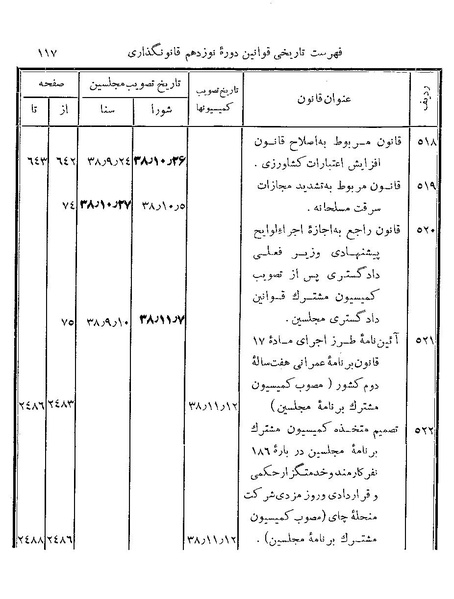 فهرست تاریخی قوانین دورهٔ نوزدهم قانونگذاری ۱۱۷
ردیف عنوان قانون تاریخ تصویب کمیسیونها تاریخ تصویب مجلسین صفحه
شورا سنا از تا
۵۱۸ قانون مربوط به‌اصلاح قانون
افزایش اعتبارات کشاورزی . ۳۸٫۱۰٫۲۶ ۳۸٫۹٫۲۴ ۶۴۲ ۶۴۳
۵۱۹ قانون مربوط به‌تشدید مجازات
سرقت مسلحانه . ۳۸٫۱۰٫۵ ۳۸٫۱۰٫۲۷ ۷۴
۵۲۰ قانون راجع به‌اجازهٔ اجراءلوایح
پیشنهادی وزیر فعلی
دادگستری پس از تصویب
کمیسیون مشترك قوانین
دادگستری مجلسین . ۳۸٫۱۱٫۷ ۳۸٫۹٫۱۰ ۷۵
۵۲۱ آئین‌نامهٔ طرز اجرای مادهٔ ۱۷
قانون‌برنامهٔ عمرانی هفت‌سالهٔ
دوم‌کشور ( مصوب کمیسیون
مشترك برنامهٔ مجلسین ) ۳۸٫۱۱٫۱۲ ۲۴۸۳ ۲۴۸۶
۵۲۲ تصمیم متخذه کمیسیون مشترك
برنامهٔ مجلسین در بارهٔ ۱۸۶
نفرکارمند و خدمتگزار حکمی
و قراردادی وروز مزدی شرکت
منحلهٔ چای (مصوب کمیسیون
مشترك برنامهٔ مجلسین ) . ۳۸٫۱۱٫۱۲ ۲۴۸۶ ۲۴۸۸